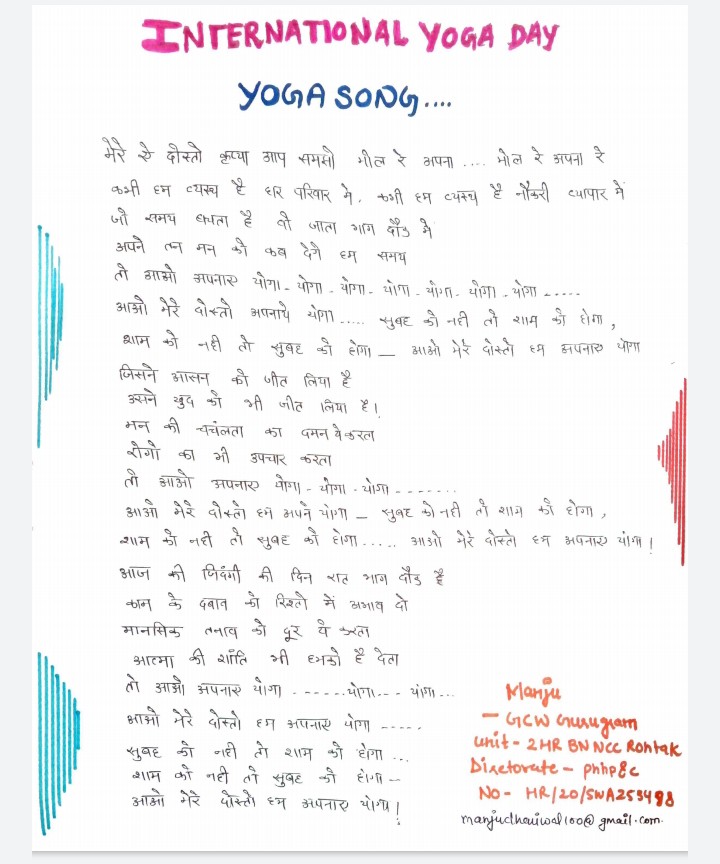 INTERNATIONAL YOGA DAY
YOGA SONG....
मेरे ऐ दोस्तो कृप्या आप समझो मोल रे अपना .... मोल रे अपना रे
कभी हम व्यस्थ है घर परिवार मे, कभी हम व्यस्थ है नौकरी व्यापार में
जो समय बचता है वो जाता भाग दौड़ में
अपने तन मन को कब देगे हम समय
तो आओ अपनाए योगा - योगा - योगा - योगा - योगा - योगा - योगा -.....
आओ मेरे दोस्तो अपनाये योगा ..... सुबह को नही तो शाम को होगा,
शाम को नही तो सुबह को होगा — आओ मेरे दोस्तो हम अपनाए योगा
जिसने आसन को जीत लिया है
उसने खुद को भी जीत लिया है।
मन की चचंलता का दमन ये करता
रोगो का भी उपचार करता
तो आओ अपनाए योगा - योगा - योगा -------
आओ मेरे दोस्तो हम अपने योगा — सुबह को नही तो शाम को होगा,
शाम को नही तो सुबह को होगा ..... आओ मेरे दोस्तो हम अपनाए योगा!
आज की जिदंगी की दिन रात भाग दौड़ है
काम के दबाव को रिश्तो में अभाव दो
मानसिक तनाव को दूर ये करता
आत्मा की शाँति भी हमको है देता
तो आओ अपनाए योगा ------ योगा --- योगा ...
आओ मेरे दोस्तो हम अपनाए योगा -----
सुबह को नही तो शाम को होगा ...
शाम को नही तो सुबह को होगा --
आओ मेरे दोस्तो हम अपनाए योगा!
Manju
— GCW Gurugram
Unit - 2 HR BN NCC Rohtak
Directorate - phhp&c
NO - HR/20/SWA253498
manjudhariwal100@gmail.com.